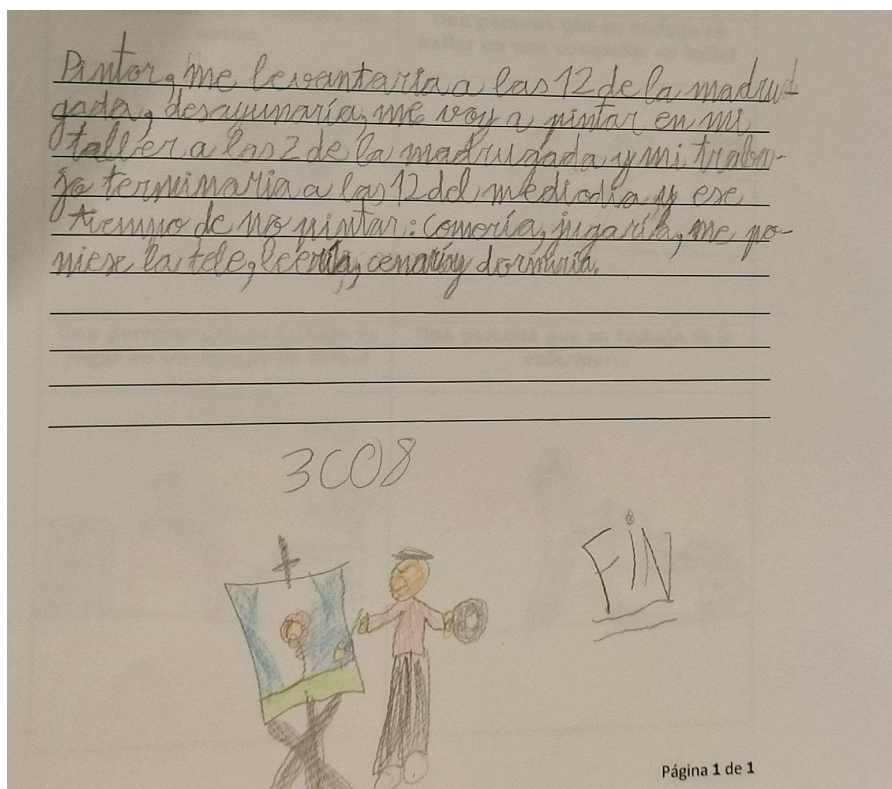 Pintor, me levantaría a las 12 de la madru
gada, desayunaría, me voy a pintar en mi
taller a las 2 de la madrugada y mi traba-
jo terminaria a las 12 del mediodía y ese
tiempo de no pintar: comería, jugaría, me po-
niese la tele, leería, cenaría y dormiría.
3CO8
FiN
Página 1 de 1